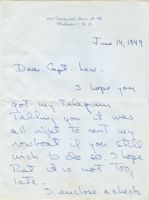 Washington 7, D.C.
June 14, 1949
Dear Capt. Lew.
I hope you
got my Telegram
Telling you it was
all right to rent my
rowboat if you still
wish to do so. I hope
That it is not Too
late.
I enclose a check